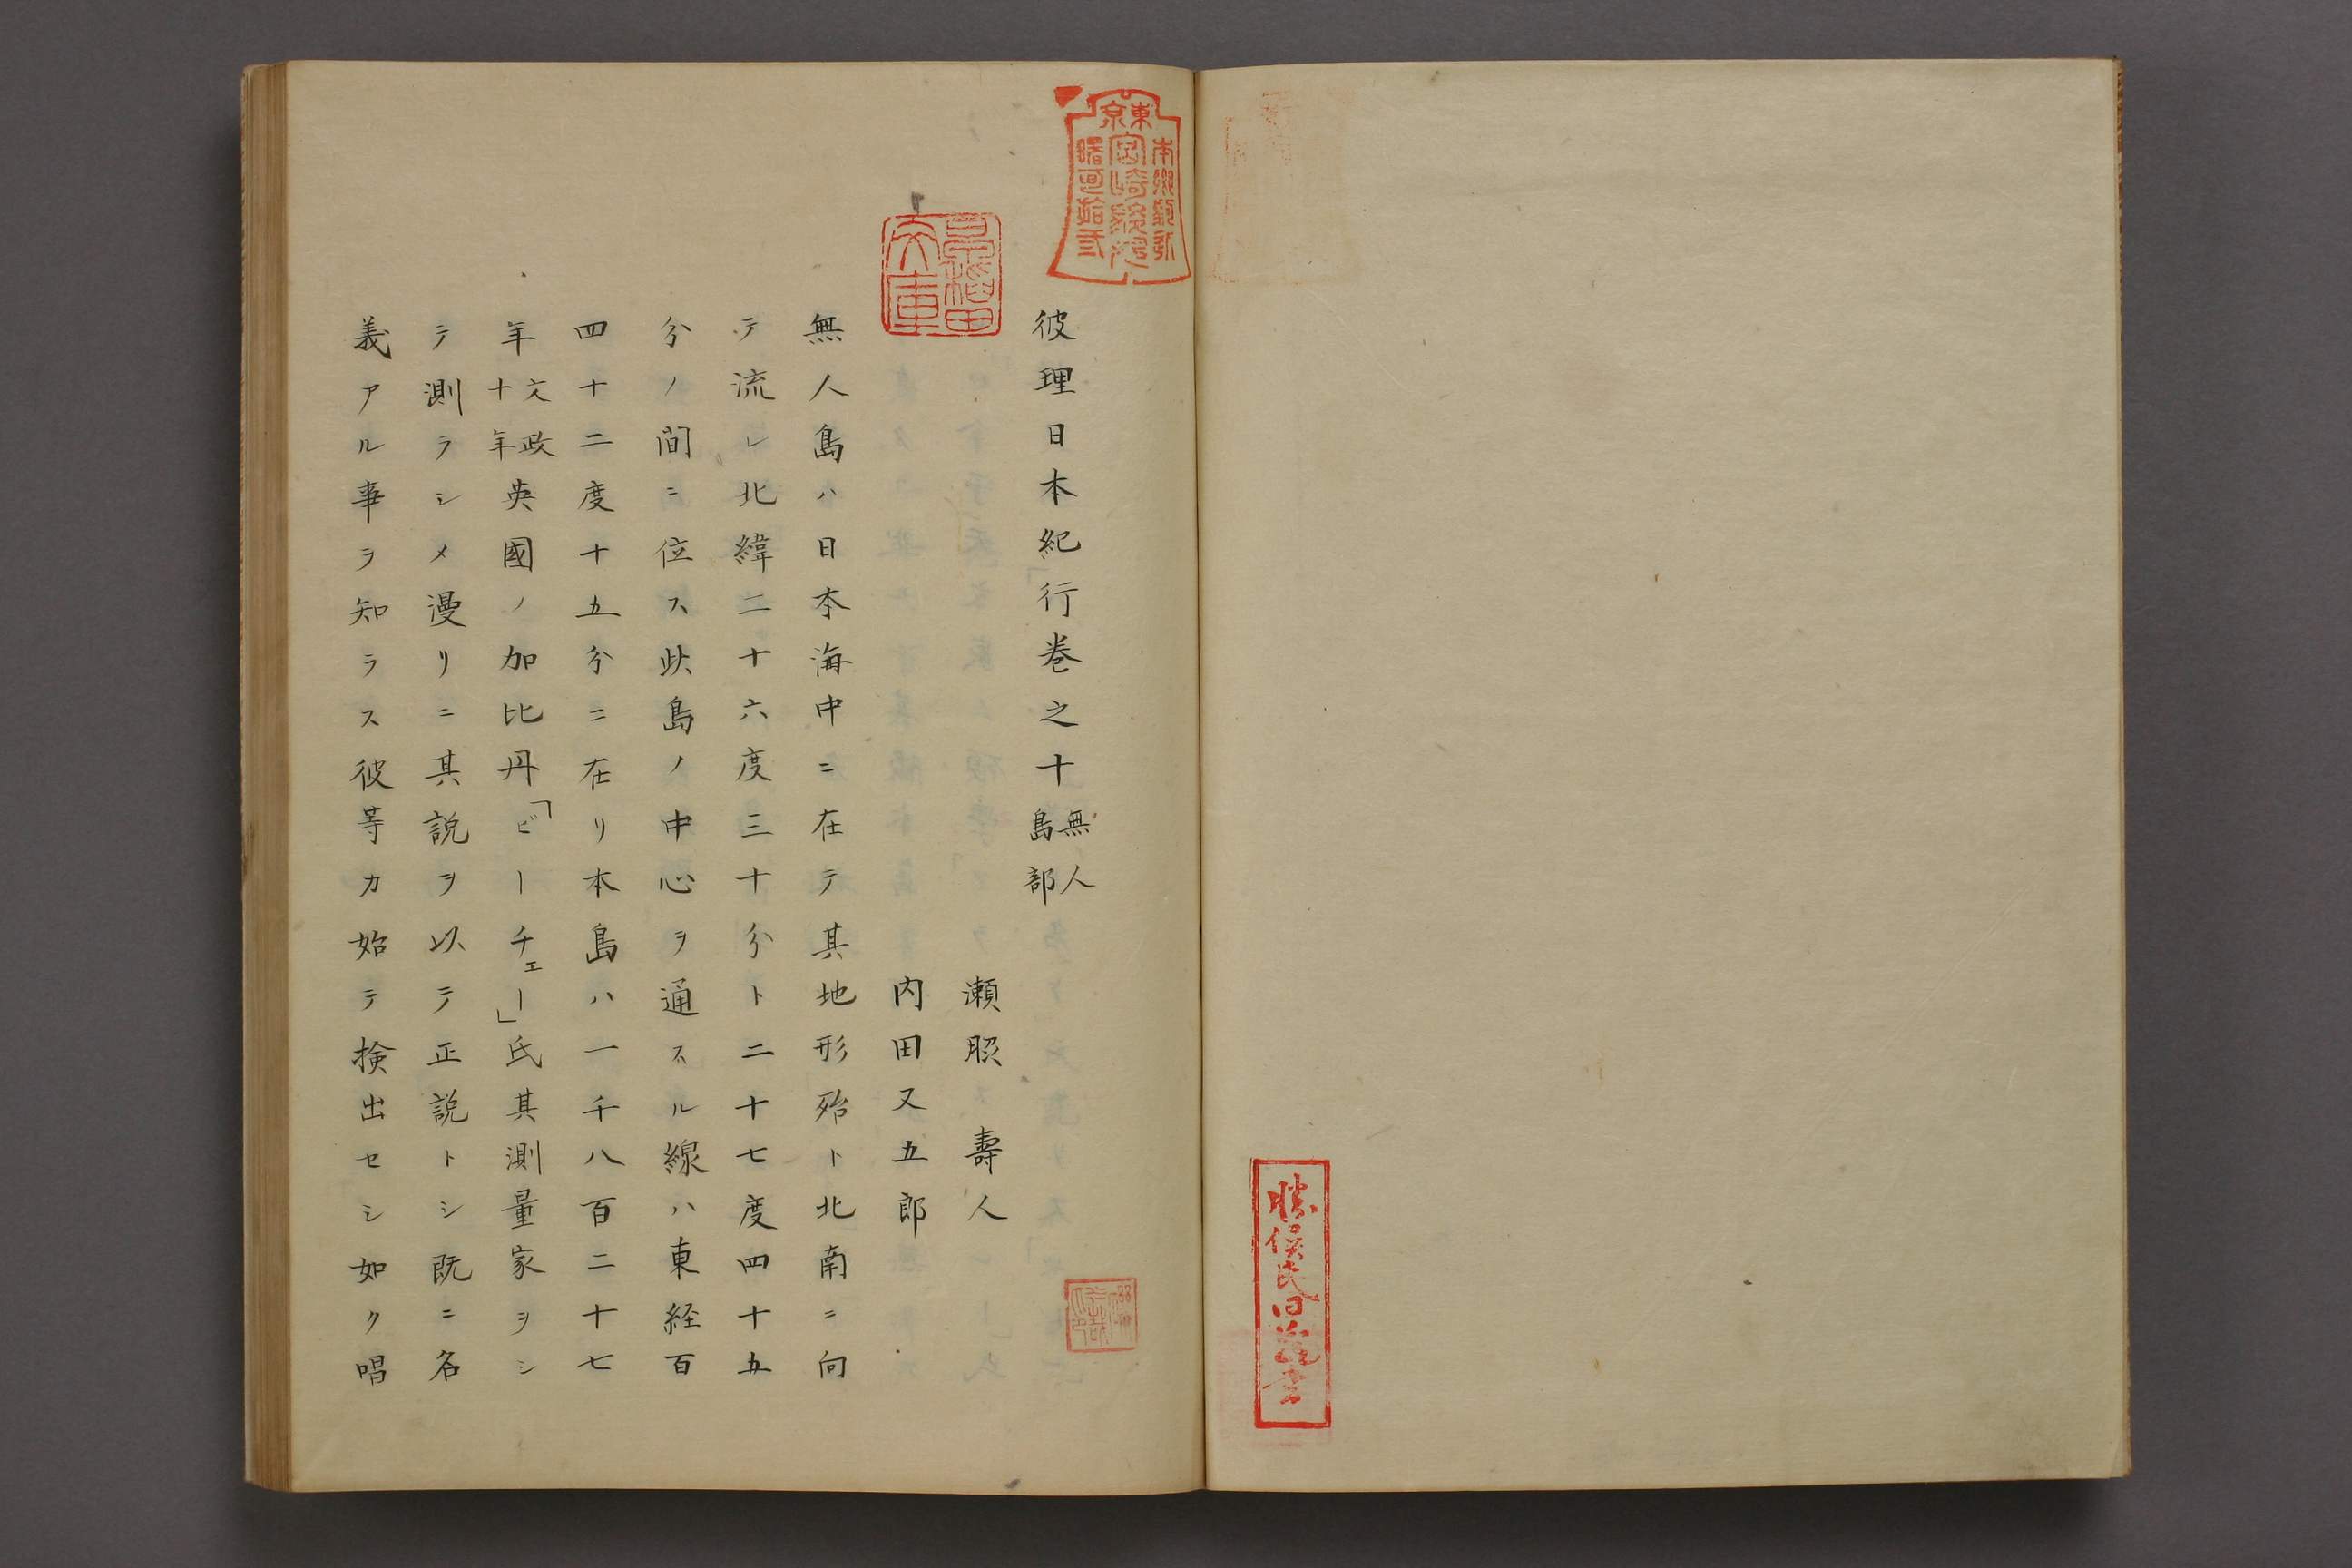 彼理日本紀行巻之十無人島部
瀬脇壽人
内田又五郎
無人島ハ日本海中ニ在テ其地形殆ト北南ニ向
テ流レ北緯二十六度三十分ト二十七度四十五
分ノ間ニ位ス此島ノ中心ヲ通スル線ハ東経百
四十二度十五分ニ在リ本島ハ一千八百二十七
年文政十年英國ノ加比丹「ビーチェー」氏其測量家ヲシ
テ測ラシメ漫リニ其説ヲ以テ正説トシ既ニ名
義アル事ヲ知ラス彼等カ始テ検出セシ如ク唱
東京
文庫